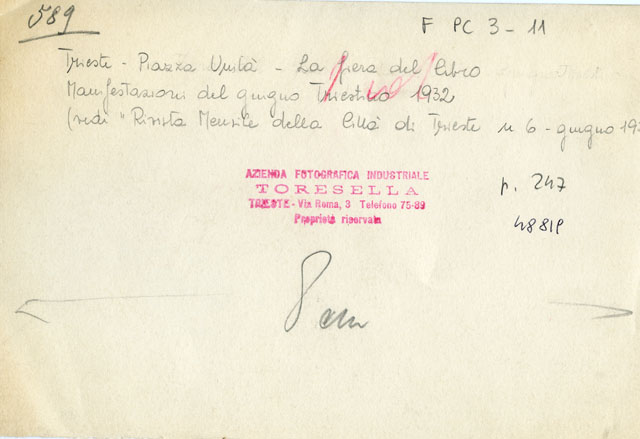 589
F PC 3-11
Trieste - Piazza Unità - La fiera del libro
Manifestazioni del giugno Triestino 1932
(vedi "Rivista Mensile della Città di Trieste n 6 - giugno 193
AZIENDA FOTOGRAFICA INDUSTRIALE
TORESELLA
TRIESTE - Via Roma, 3 Telefono 75-89
Proprietà riservata
p. 247
48819
8 cm